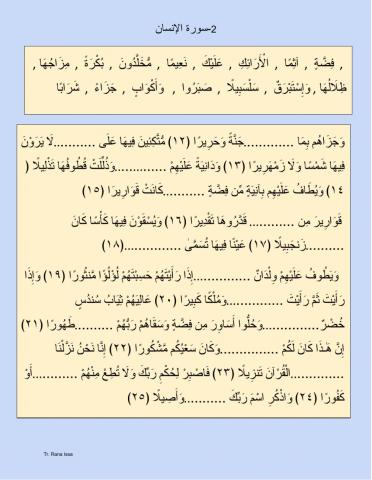 2-سورة الإنسان
, فِضَّةٍ , آثِمًا , الْأَرَائِكِ , عَلَيْكَ , نَعِيمًا , مُّخَلَّدُونَ , بُكْرَةً , مِزَاجُهَا ,
ظِلَالُهَا , وَإِسْتَبْرَقٌ , سَلْسَبِيلًا , صَبَرُوا , وَأَكْوَابٍ , جَزَاءً , شَرَابًا
وَجَزَاهُم بِمَا ............جَنَّةً وَحَرِيرًا (١٢) مُتَّكِئِينَ فِيهَا عَلَى ..........لَا يَرَوْنَ
فِيهَا شَمْسًا وَلَا زَمْهَرِيرًا (١٣) وَدَانِيَةً عَلَيْهِمْ .............وَذُلِّلَتْ قُطُوفُهَا تَذْلِيلًا (
١٤) وَيُطَافُ عَلَيْهِم بِآنِيَةٍ مِّن فِضَّةٍ ..........كَانَتْ قَوَارِيرَا (١٥)
قَوَارِيرَ مِن ............ قَدَّرُوهَا تَقْدِيرًا (١٦) وَيُسْقَوْنَ فِيهَا كَأْسًا كَانَ
..........زَنجَبِيلًا (١٧) عَيْنًا فِيهَا تُسَمَّىٰ ................(١٨)
وَيَطُوفُ عَلَيْهِمْ وِلْدَانٌ ...............إِذَا رَأَيْتَهُمْ حَسِبْتَهُمْ لُؤْلُؤًا مَّنثُورًا (١٩) وَإِذَا
رَأَيْتَ ثَمَّ رَأَيْتَ ...............وَمُلْكًا كَبِيرًا (٢٠) عَالِيَهُمْ ثِيَابُ سُندُسٍ
خُضْرٌ...............وَحُلُّوا أَسَاوِرَ مِن فِضَّةٍ وَسَقَاهُمْ رَبُّهُمْ ..........طَهُورًا (٢١)
إِنَّ هَـٰذَا كَانَ لَكُمْ ...............وَكَانَ سَعْيُكُم مَّشْكُورًا (٢٢) إِنَّا نَحْنُ نَزَّلْنَا
...............الْقُرْآنَ تَنزِيلًا (٢٣) فَاصْبِرْ لِحُكْمِ رَبِّكَ وَلَا تُطِعْ مِنْهُمْ ............أَوْ
كَفُورًا (٢٤) وَاذْكُرِ اسْمَ رَبِّكَ ...........وَأَصِيلًا (٢٥)
Tr. Rana Issa